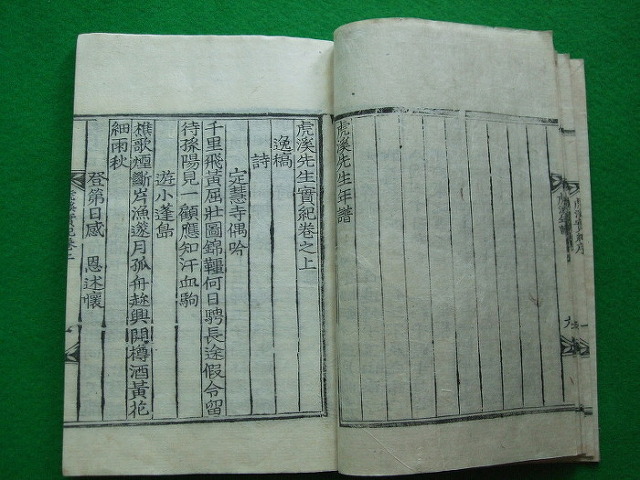 虎溪先生年譜
虎溪先生實紀卷之上
逸稿
詩
定慧寺偶吟
千里飛黃屈壯圖錦韁何日騁長途假令留
待孫陽見一顧應知汗血駒
遊小蓬島
樵歌煙斷岸漁邃月孤舟趂興開樽酒黃花
細雨秋
登第日感 恩述懷